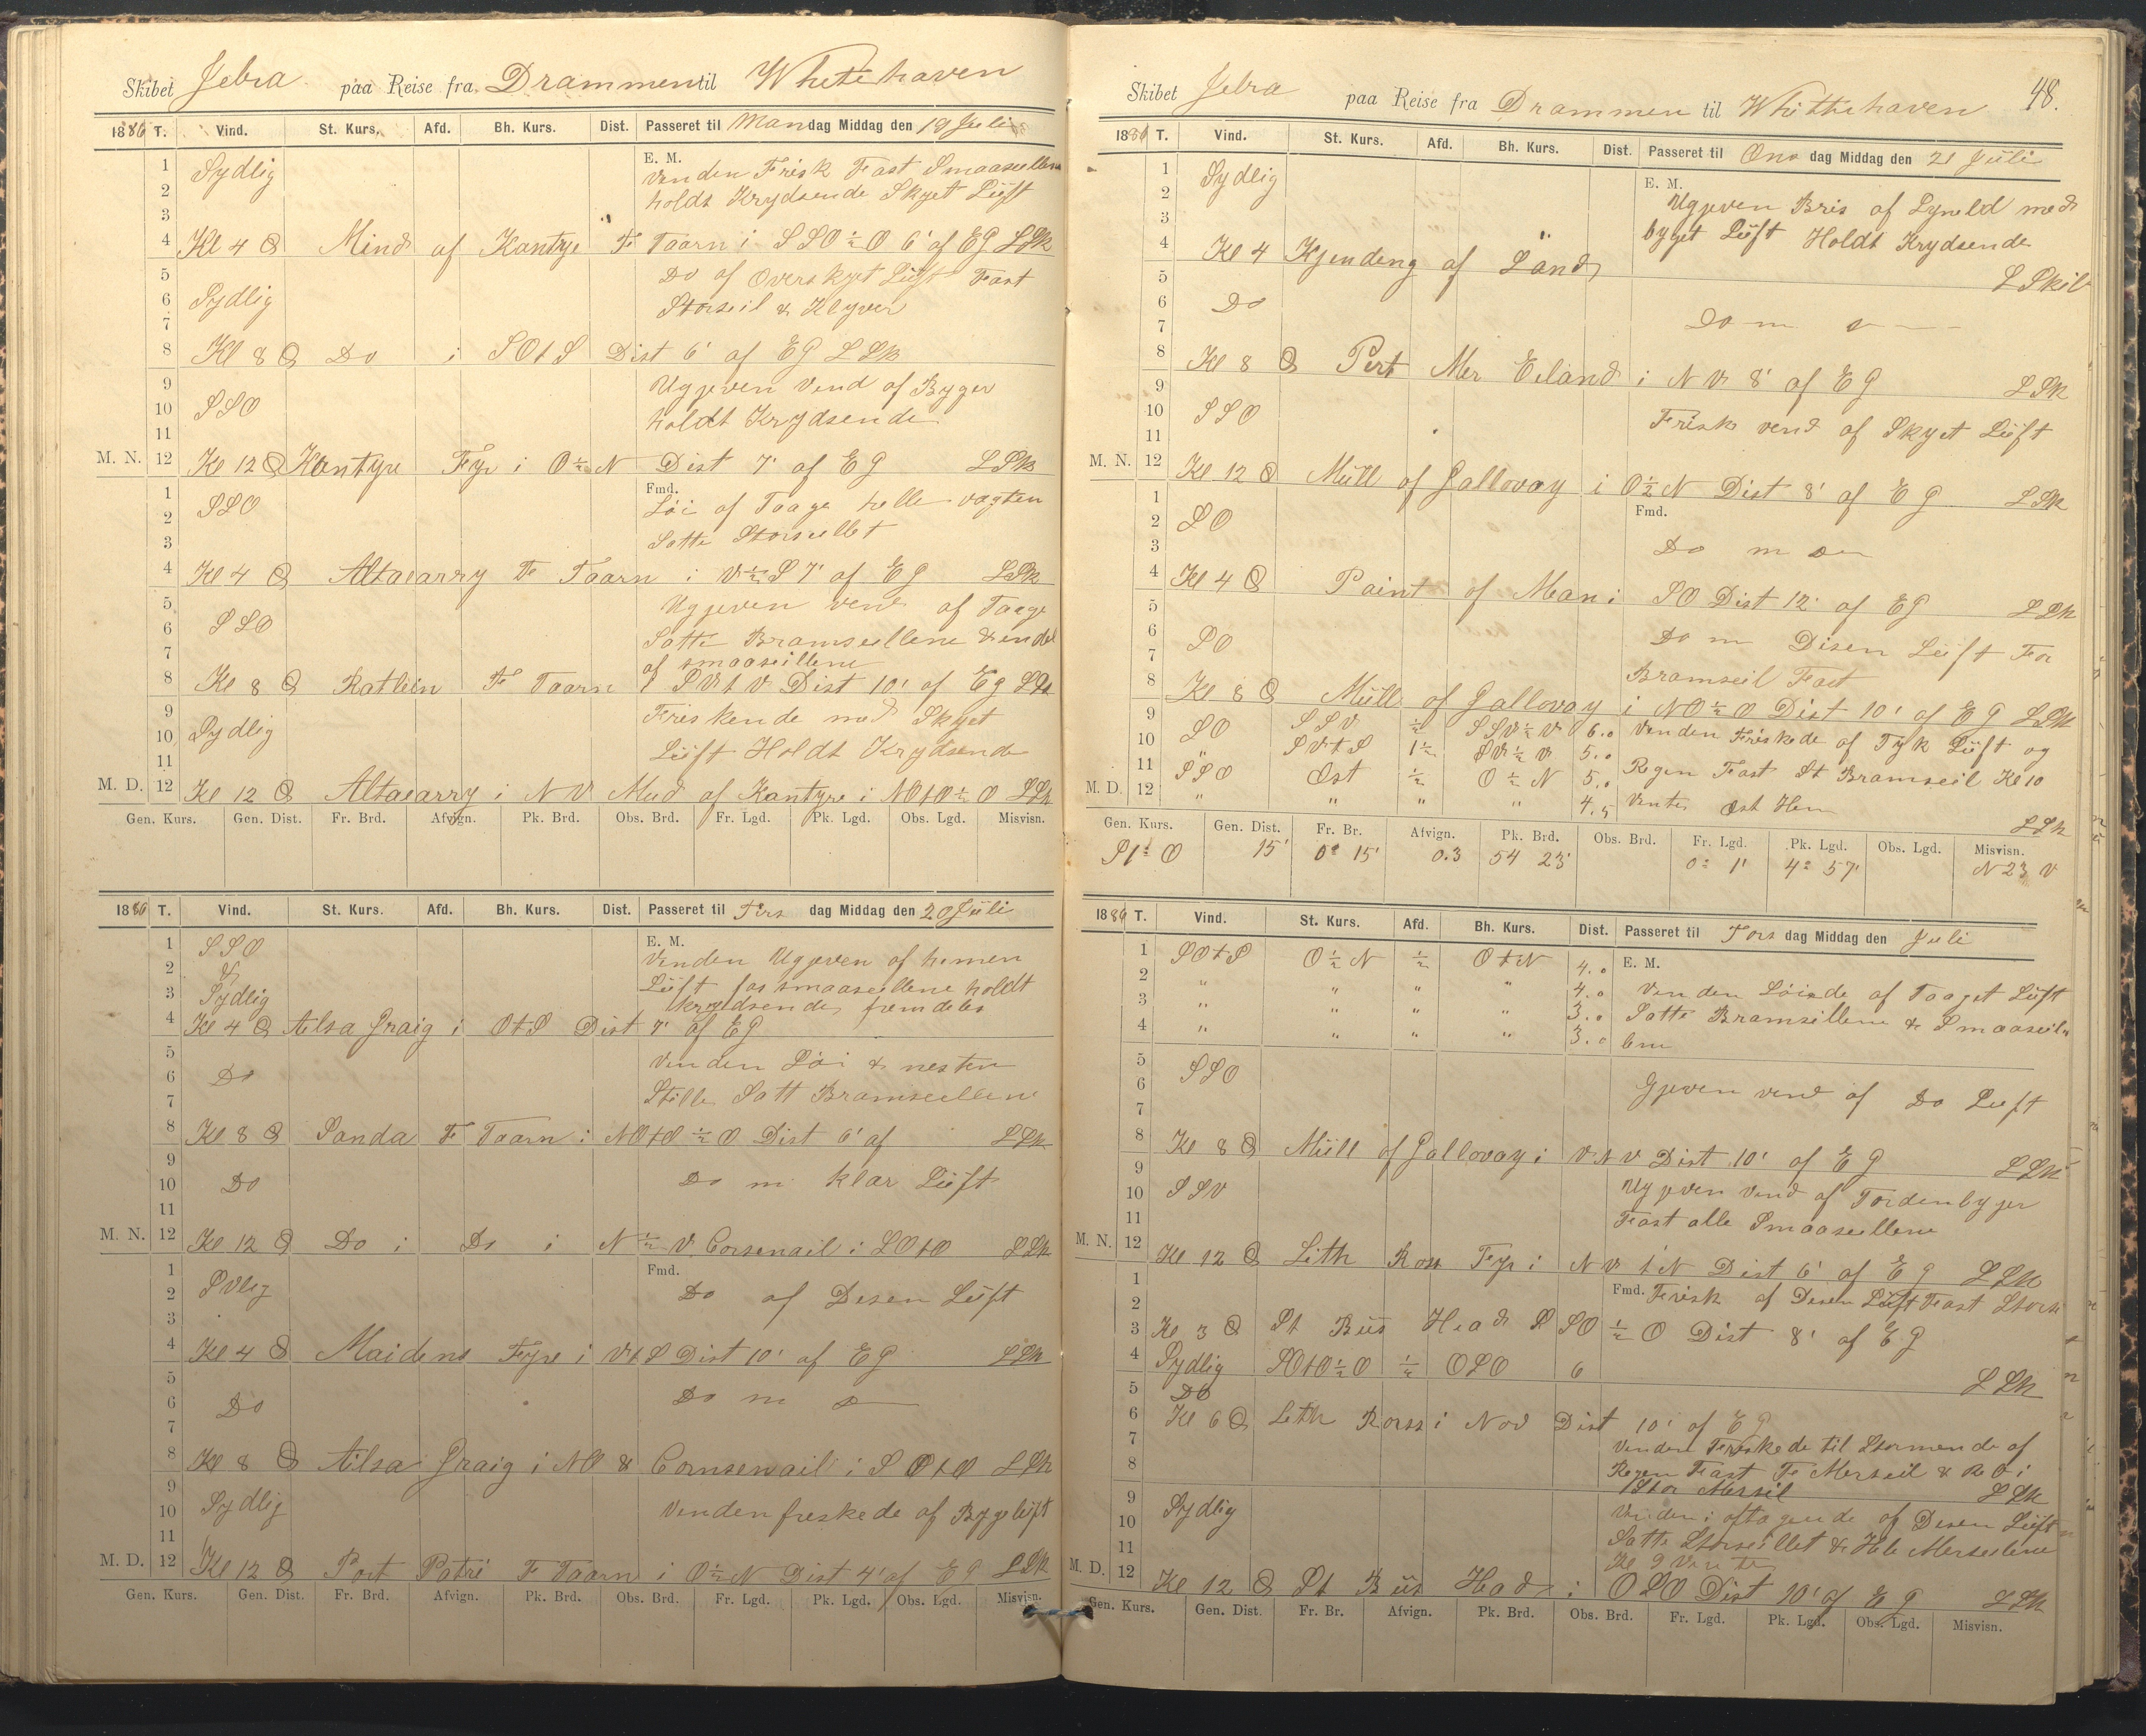 Skibet Jebra paa Reise fra Drammen til Whitehaven
1886 T. Vind. St. Kurs. Afd. Bh. Kurs. Dist. Passeret til Mandag Middag den 19 Juli
E. M.
1 Sydlig Vinden Frisk Fast Smaaseillene
2 holdt Krydsende Skyet Lüft
3
4 Kl 4 Mind af Kantyre F Taarn i SSO ½ O 6' af EG LSk
5 Do af Overskyet Lüft Fast
6 Sydlig Storseil & Klyver
7
8 Kl 8 Do i SOtS Dist 6' af EG LSk
9 Ugjeven Vend af Byger
10 SSO holdt Krydsende
11
M. N. 12 Kl 12 Kantyre Fyr i O ½ N Dist 7' af EG LSk
Fmd.
1 SSO Löi af Taage helle vagten
2
3 Satte Storseillet
4 Kl 4 Altacarry F Taarn i V ½ S 7' af EG LSk
5 Ugjeven vend af Taage
6 SSO Satte Bramseillene & endel
7 af smaaseillene
8 Kl 8 Ratlein F Taarn i SVtV Dist 10' af EG LSk
9 Friskende med Skyet
10 Sydlig
11 Lüft Holdt Krydsende
M. D. 12 Kl 12 Altacarry i NV Mud af Kantyre i NOtO ½ O LSk
Gen. Kurs. Gen. Dist. Fr. Brd. Afvign. Pk. Brd. Obs. Brd. Fr. Lgd. Pk. Lgd. Obs. Lgd. Misvisn.
1886 T. Vind. St. Kurs. Afd. Bh. Kurs. Dist. Passeret til Tirs dag Middag den 20 Juli
E. M.
1 SSO Vinden Ugjeven af
2 & Lüft smaaseillene holdt
3 Sydlig krydsende fremdeles
4 Kl 4 Ailsa Graig i OtS Dist 7' af EG
5 Vinden Löi & nesten
6 Do
7 Stille Satt Bramseillene
8 Kl 8 Sanda F Taarn i NOtO ½ O Dist 6' af LSk
9
10 Do Do m klar Lüft
11
M. N. 12 Kl 12 Do i Do i N ½ V Corsenail i SOtO LSk
Fmd.
1
2 SVlig Do af Desen Lüft
3
4 Kl 4 Maidens Fyre i VtS Dist 10' af EG LSk
5
6 Do Do m
7
8 Kl 8 Ailsa Graig i NO & Cornsenail i SOtO LSk
9
10 Sydlig Vinden freskede af Bygeluft
11
M. D. 12 Kl 12 Port Patri F Taarn i O ½ N Dist 4' af EG LSk
Gen. Kurs. Gen. Dist. Fr. Brd. Afvign. Pk. Brd. Obs. Brd. Fr. Lgd. Pk. Lgd. Obs. Lgd. Misvisn.
48.
Skibet Jebra paa Reise fra Drammen til Whittehaven
1886 T. Vind. St. Kurs. Afd. Bh. Kurs. Dist. Passeret til Ons dag Middag den 21 Juli
E. M.
1 Sydlig
2 Ugjeven Bris af Lyneld med
3 byget Lüft Holdt Krydsende
4 Kl 4 Kjendeng af Land
5 LSk
6 Do
7 Do m
8 Kl 8 Pert Mer Eiland i NV 8' af EG LSk
9
10 SSO Friske vend af Skyet Lüft
11
M. N. 12 Kl 12 Müll of Gallovay i O ½ N Dist 8' af EG LSk
Fmd.
1
2 SO Do m
3
4 Kl 4 Paint of Man i SO Dist 12' af EG LSk
5
6 SO Do m Disen Lüft For
7 Bramseil Fast
8 Kl 8 Müll of Gallovay i NO ½ O Dist 10' af EG LSk
9 SO SSV ½ SSV ½ V 6.0 Vinden Friskede af Tyk Lüft og
10 " SVtS 1½ SV ½ V 5.0
11 SSO Ost ½ O ½ N 5.0 Regen Fast St Bramseil Kl 10
M. D. 12 " " " " 4.5 Venter Ost Hen
LSk
Gen. Kurs. Gen. Dist. Fr. Br. Afvign. Pk. Brd. Obs. Brd. Fr. Lgd. Pk. Lgd. Obs. Lgd. Misvisn.
S 1° O 15' 0° 15' 0.3 54 23' 0° 1' 4° 57' N 23 V
1886 T. Vind. St. Kurs. Afd. Bh. Kurs. Dist. Passeret til Tors dag Middag den Juli
E. M.
1 SOtS O ½ N ½ OtN 4.0
2 " " " " 4.0 Vinden Löiede af Taaget Lüft
3 " " " " 3.0 Satte Bramseillene & Smaaseil
4 " " " " 3.0 lene
5
6 SSO Gjeven vend af Do Luft
7
8 Kl 8 Müll of Gallovay i VNV Dist 10' af EG LSk
9
10 SSV Ugjeven Vend af Tordenbyger
11 Fast alle Smaaseillene
M. N. 12 Kl 12 Leth Ross Fyr i NVtN Dist 6' af EG LSk
Fmd. Frisk af Desen Lüft Fast Stors
1
2
3 Kl 3 St Büs Head SSO ½ O Dist 8' af EG
4 Sydlig SOtO ½ O ½ OSO 6 LSk
5 Do
6 Kl 6 Leth Rorss i Nov Dist 10' af EG
7 Vinden Freskede til Stormende af
8 Regen Fast F Merseil & i
Stor Mersil LSk
9
10 Sydlig Vinden i aftagende af Desen Lüft
11 Satte Storseillet & Hele Merseilene
Kl 9 Vente
M. D. 12 Kl 12 St Büs Had i OSO Dist 10' af EG LSk
Gen. Kurs. Gen. Dist. Fr. Br. Afvign. Pk. Brd. Obs. Brd. Fr. Lgd. Pk. Lgd. Obs. Lgd. Misvisn.